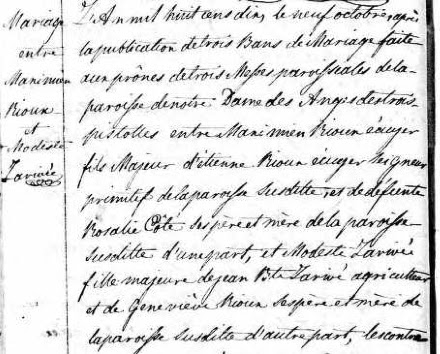 Mariage
entre
Maximien
Rioux
et
Modeste
Larivée
L'An mil huit cens dix, le neuf octobre, après
la publication de trois Bans de Mariage faite
aux prônes de trois Messes paroissiales de la
paroisse de nôtre Dame des Anges des trois
pistolles entre Maximien Rioux écuyer
fils Majeur d'étienne Rioux écuyer seigneur
primitif de la paroisse susditte, et de defeunte
Rosalie Côté ses père et mère de la paroisse
susditte d'une part, et Modeste Larivé
fille majeure de jean Bte Larivé agriculteur
et de Geneviève Rioux ses père et mère de
la paroisse susdite d'autre part, les contra